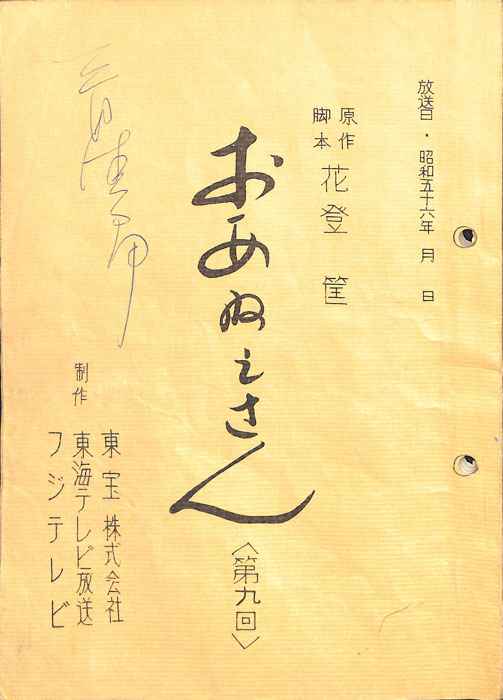 放送日・昭和五十六年 月 日
原作
脚本
花登 筐
おあねえさん
〈第九回〉
制作
東宝株式会社
東海テレビ放送
フジテレビ